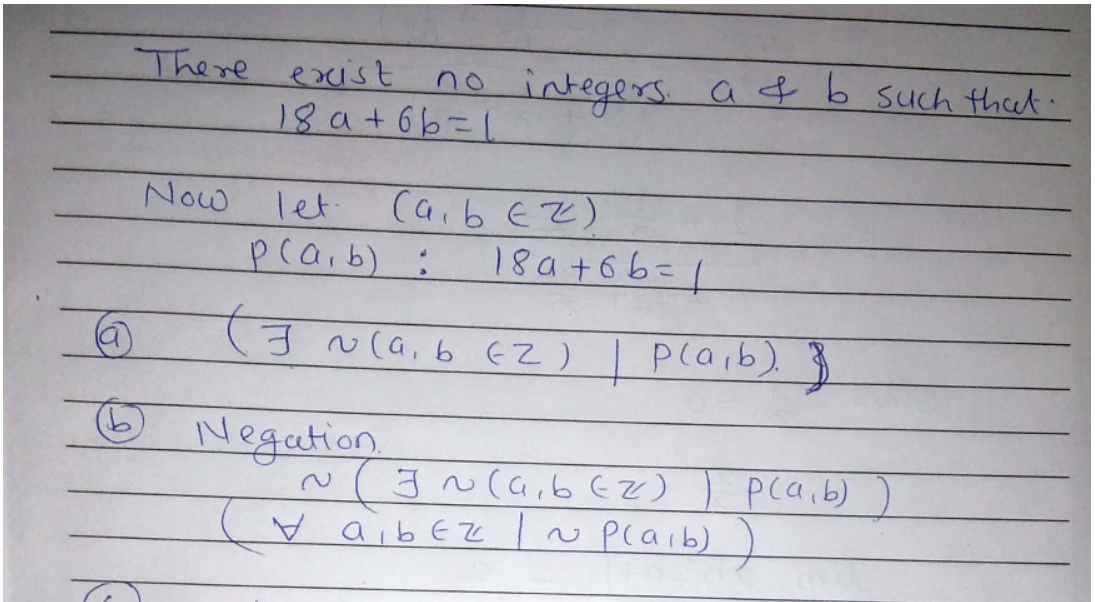 There exist no integers. a & b such that.
18a+6b=1
Now let. (a,b ∈ Z)
P(a,b) : 18a+6b=1
(a) (∃ ~(a,b ∈ Z) | P(a,b).
(b) Negation.
~(∃ ~(a,b ∈ Z) | P(a,b))
(∀ a,b ∈ Z | ~P(a,b))